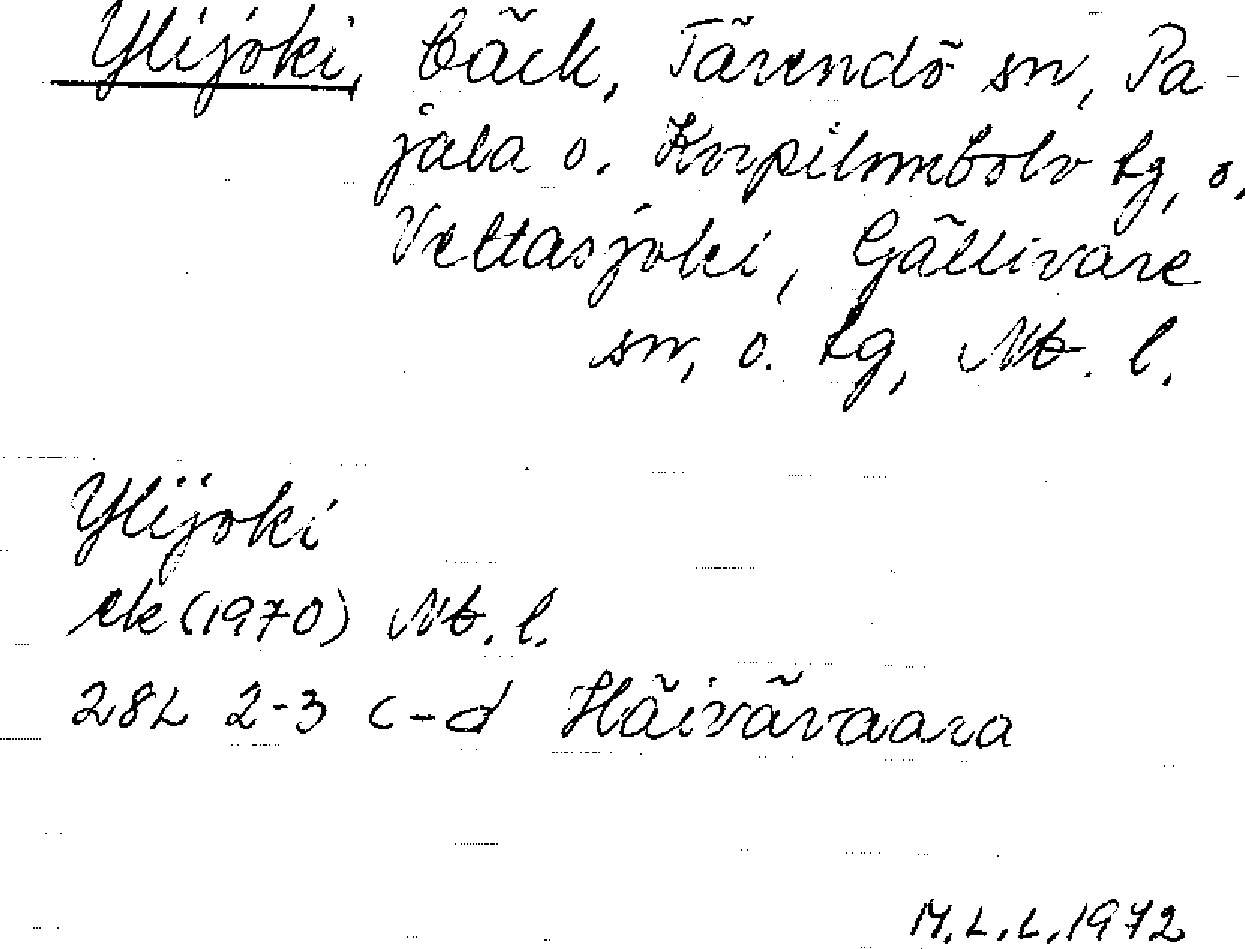 Ylijoki, bäck, Tärendö sn, Pa-
jala o. Korpilombolo tg, o.
Vettasjoki, Gällivare
sn, o. tg, Nb. l.
Ylijoki
ek (1970) Nb. l.
28L 2-3 c-d Häivävaara
M.L.L. 1972